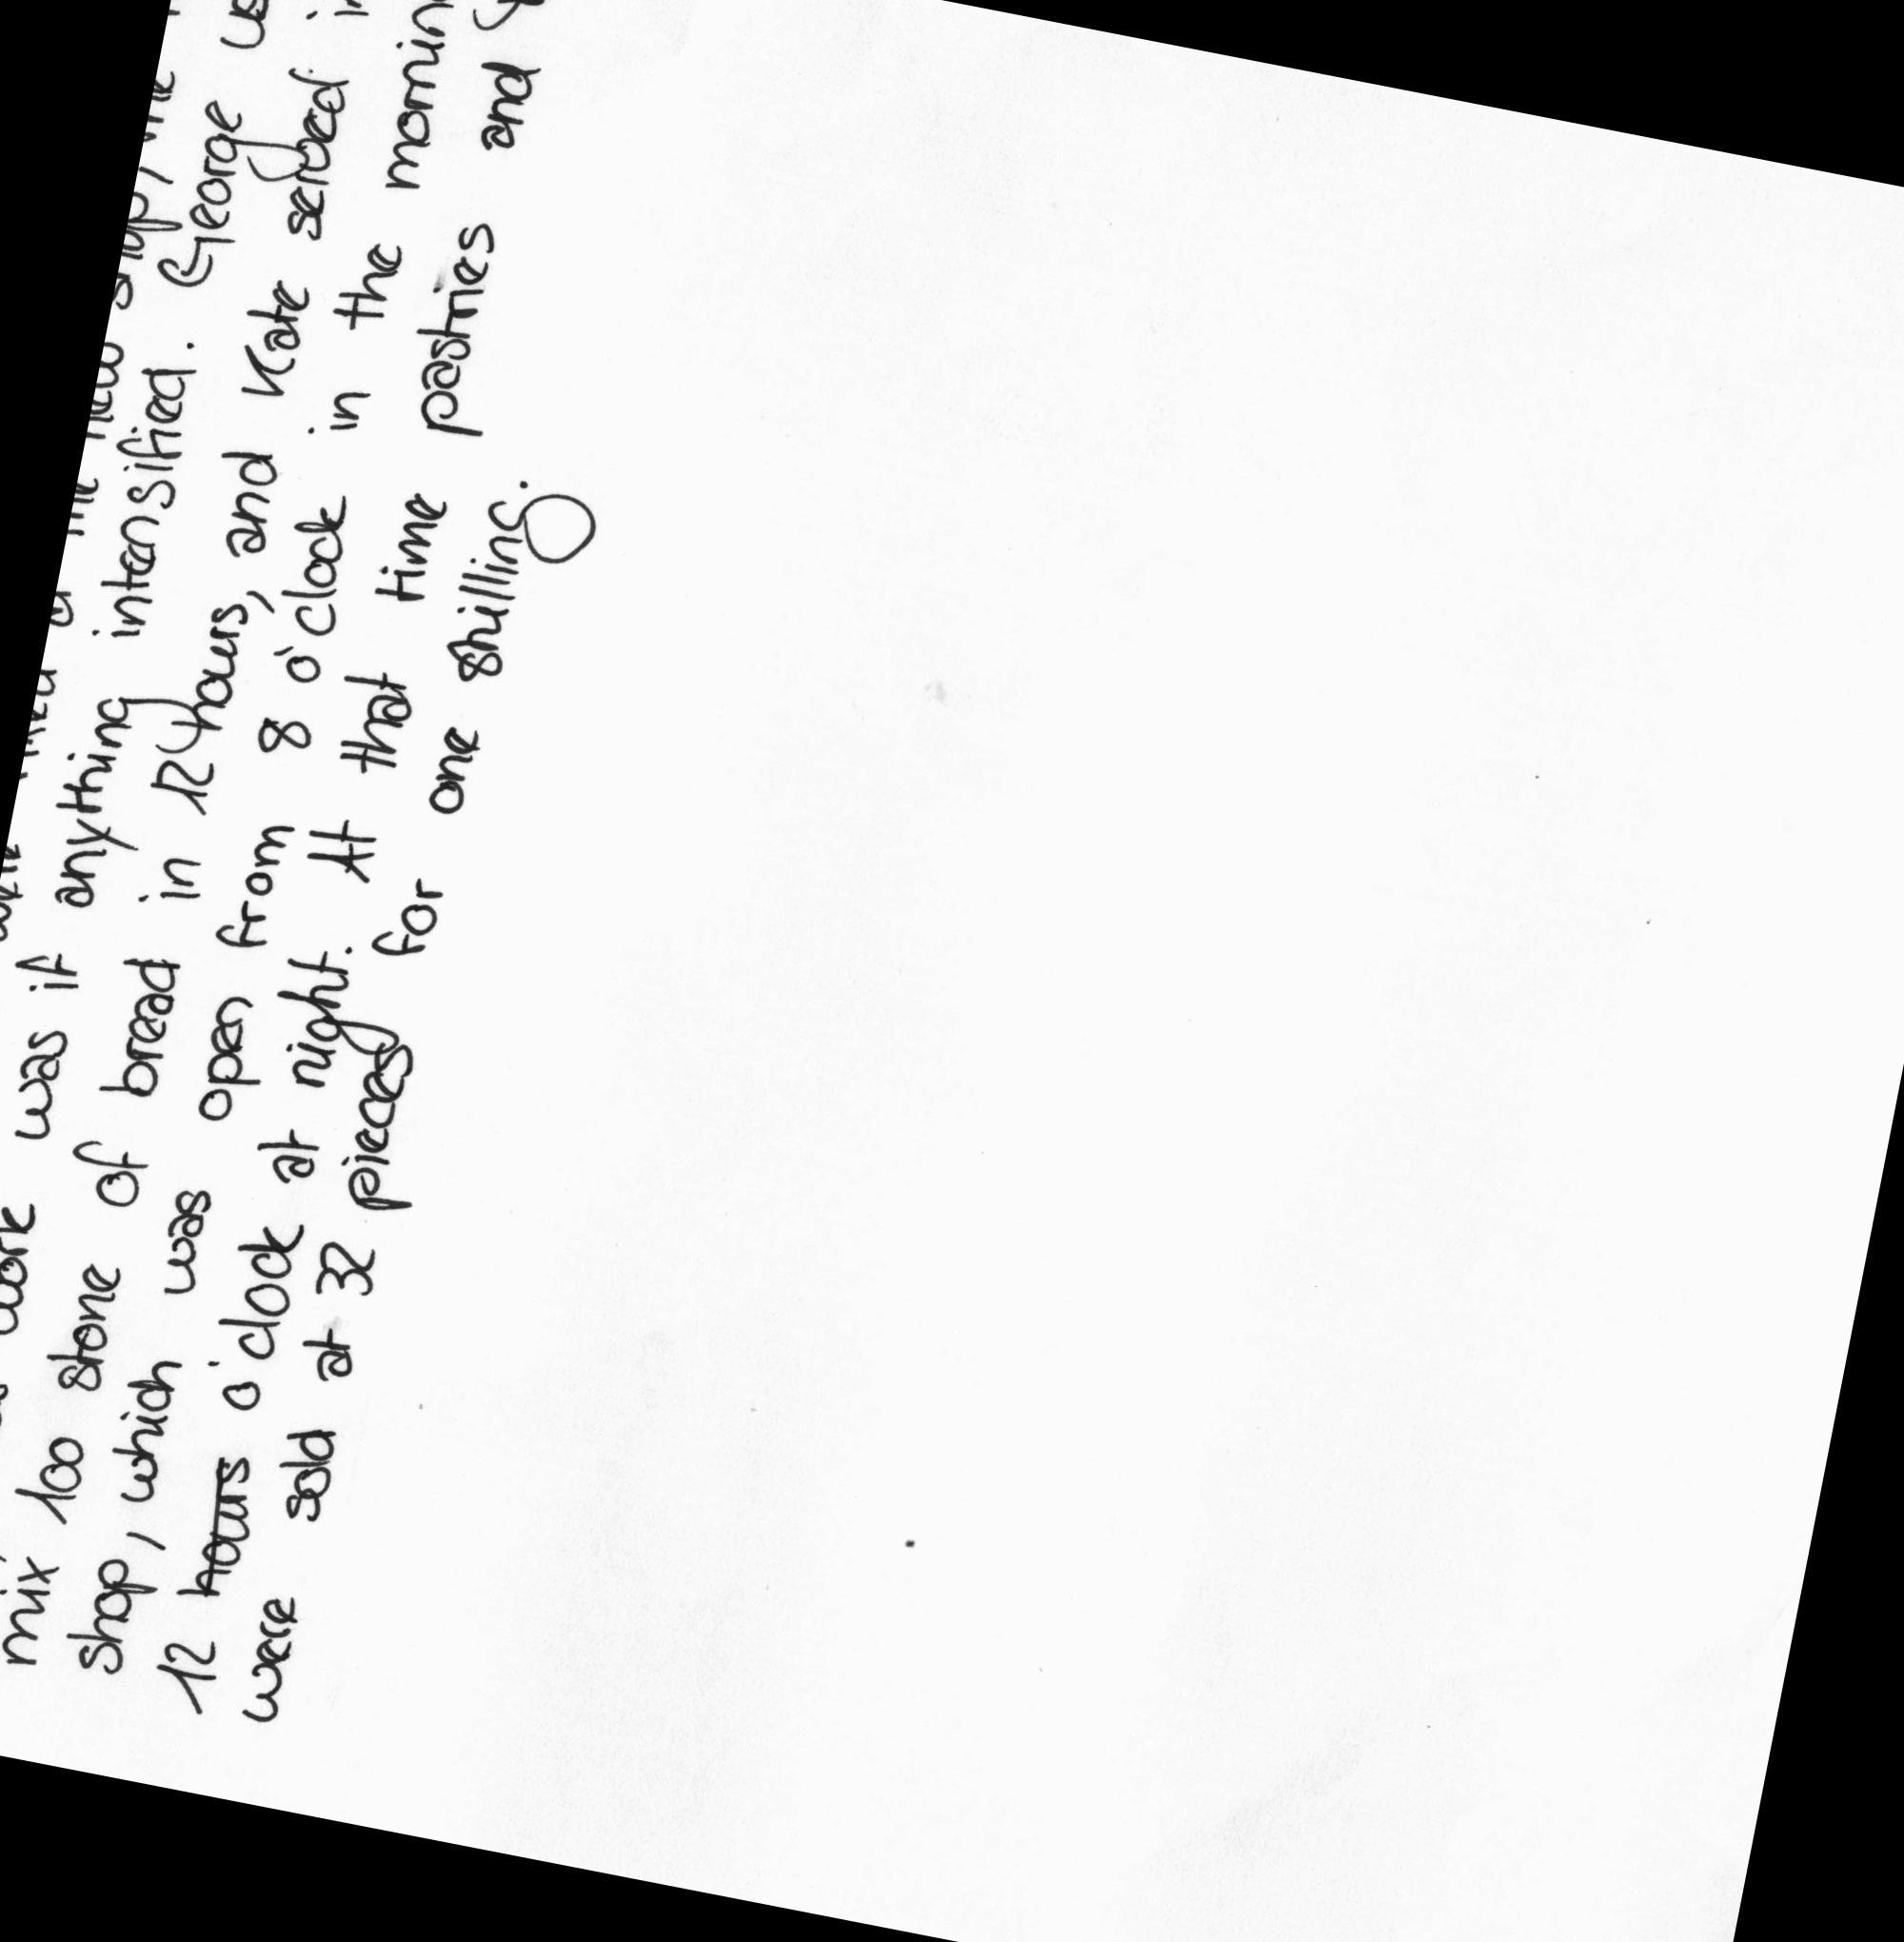 work was if anything intensified. George
mix 100 stone of bread in 12 hours, and Kate served
shop, which was open from 8 o'clock in the
12 hours o'clock at night. At that time pastries and
were sold at 32 pieces for one shilling.